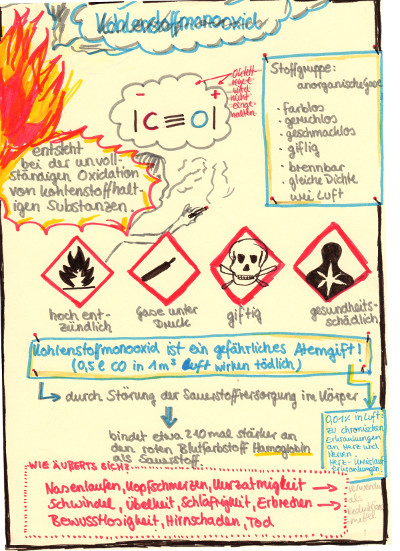 Kohlenstoffmonooxid
Oktett-
regel
wird
nicht
einge-
halten
- +
|C≡O|
Stoffgruppe:
anorganische Gase
· farblos
· geruchlos
· geschmachlos
· giftig
· brennbar
· gleiche Dichte
wei Luft
entsteht
bei der unvoll-
ständigen Oxidation
von kohlenstoffhalt-
igen Substanzen.
hoch ent-
zündlich
Gase unter
Druck
giftig
gesundheits-
schädlich
Kohlenstoffmonooxid ist ein gefährliches Atemgift!
(0,5 l CO in 1m³ Luft wirken tödlich)
durch Störung der Sauerstoffversorgung im Körper
bindet etwa 210 mal stärker an
den roten Blutfarbstoff Hämoglobin
als Sauerstoff.
0,01% in Luft:
zu chronischen
Erkrankungen
an Herz und
Nerven.
Herz-kreislauf
Erkrankungen.
WIE ÄUßERTS SICH?
Nasenlaufen, Kopfschmerzen, Kurzatmigkeit
Schwindel, Übelkeit, Schläfrigkeit, Erbrechen
Bewusstlosigkeit, Hirnschaden, Tod
als